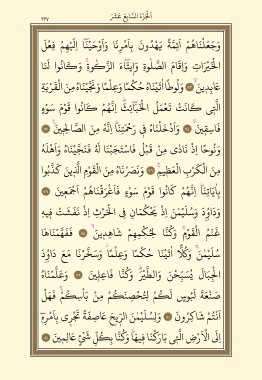 اَلْجُزْءُ السَّابِعَ عَشَرَ
٣٢٧
وَجَعَلْنَاهُمْ اَئِمَّةً يَهْدُونَ بِاَمْرِنَا وَاَوْحَيْنَٓا اِلَيْهِمْ فِعْلَ
الْخَيْرَاتِ وَاِقَامَ الصَّلٰوةِ وَا۪يتَٓاءَ الزَّكٰوةِۚ وَكَانُوا لَنَا
عَابِد۪ينَۚ ﴿٧٣﴾ وَلُوطًا اٰتَيْنَاهُ حُكْمًا وَعِلْمًا وَنَجَّيْنَاهُ مِنَ الْقَرْيَةِ
الَّت۪ي كَانَتْ تَعْمَلُ الْخَبَٓائِثَۜ اِنَّهُمْ كَانُوا قَوْمَ سَوْءٍ
فَاسِق۪ينَۙ ﴿٧٤﴾ وَاَدْخَلْنَاهُ ف۪ي رَحْمَتِنَاۜ اِنَّهُ مِنَ الصَّالِح۪ينَ۟ ﴿٧٥﴾
وَنُوحًا اِذْ نَادٰى مِنْ قَبْلُ فَاسْتَجَبْنَا لَهُ فَنَجَّيْنَاهُ وَاَهْلَهُ
مِنَ الْكَرْبِ الْعَظ۪يمِۚ ﴿٧٦﴾ وَنَصَرْنَاهُ مِنَ الْقَوْمِ الَّذ۪ينَ كَذَّبُوا
بِاٰيَاتِنَاۜ اِنَّهُمْ كَانُوا قَوْمَ سَوْءٍ فَاَغْرَقْنَاهُمْ اَجْمَع۪ينَ ﴿٧٧﴾
وَدَاوُ۫دَ وَسُلَيْمٰنَ اِذْ يَحْكُمَانِ فِي الْحَرْثِ اِذْ نَفَشَتْ ف۪يهِ
غَنَمُ الْقَوْمِۚ وَكُنَّا لِحُكْمِهِمْ شَاهِد۪ينَۙ ﴿٧٨﴾ فَفَهَّمْنَاهَا
سُلَيْمٰنَۚ وَكُلًّا اٰتَيْنَا حُكْمًا وَعِلْمًاۘ وَسَخَّرْنَا مَعَ دَاوُ۫دَ
الْجِبَالَ يُسَبِّحْنَ وَالطَّيْرَۜ وَكُنَّا فَاعِل۪ينَ ﴿٧٩﴾ وَعَلَّمْنَاهُ
صَنْعَةَ لَبُوسٍ لَكُمْ لِتُحْصِنَكُمْ مِنْ بَأْسِكُمْۚ فَهَلْ
اَنْتُمْ شَاكِرُونَ ﴿٨٠﴾ وَلِسُلَيْمٰنَ الرّ۪يحَ عَاصِفَةً تَجْر۪ي بِاَمْرِه۪ٓ
اِلَى الْاَرْضِ الَّت۪ي بَارَكْنَا ف۪يهَاۜ وَكُنَّا بِكُلِّ شَيْءٍ عَالِم۪ينَ ﴿٨١﴾